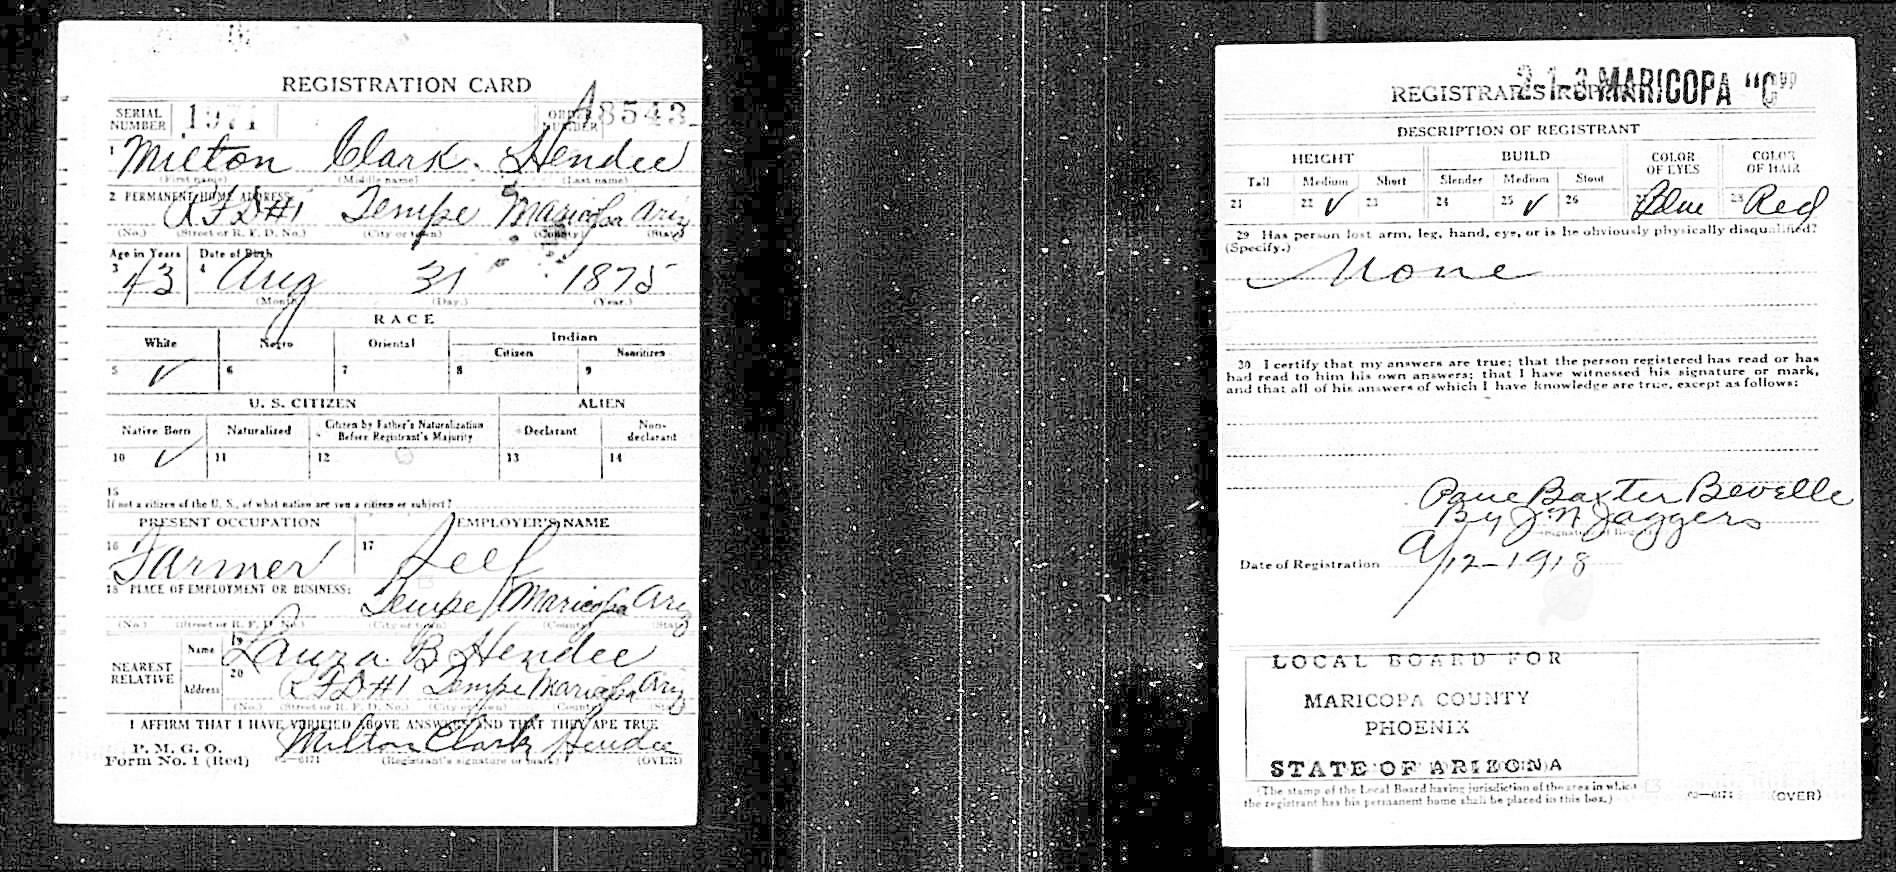 REGISTRATION CARD
SERIAL NUMBER 1971 ORDER NUMBER A8543
1 Milton Clark Hendee
(First name) (Middle name) (Last name)
2 PERMANENT HOME ADDRESS:
RFD#1 Tempe Maricopa Ariz
(No.) (Street or R. F. D. No.) (City or town) (County) (State)
Age in Years Date of Birth
3 43 4 Aug 31 1875
(Month.) (Day.) (Year.)
RACE
White Negro Oriental Indian
Citizen Noncitizen
5 ✓ 6 7 8 9
U. S. CITIZEN ALIEN
Native Born Naturalized Citizen by Father's Naturalization Before Registrant's Majority Declarant Non-declarant
10 ✓ 11 12 13 14
15
If not a citizen of the U. S., of what nation are you a citizen or subject?
PRESENT OCCUPATION EMPLOYER'S NAME
16 Farmer 17 Self
18 PLACE OF EMPLOYMENT OR BUSINESS:
Tempe Maricopa Ariz
(No.) (Street or R. F. D. No.) (City or town) (County) (State)
NEAREST RELATIVE
Name 19 Laura B Hendee
Address 20 RFD#1 Tempe Maricopa Ariz
(No.) (Street or R. F. D. No.) (City or town) (County) (State)
I AFFIRM THAT I HAVE VERIFIED ABOVE ANSWERS AND THAT THEY ARE TRUE
P. M. G. O.
Form No. 1 (Red) Milton Clark Hendee
(Registrant's signature or mark) (OVER)
REGISTRAR'S REPORT
2-1-3 MARICOPA "C"
DESCRIPTION OF REGISTRANT
HEIGHT BUILD COLOR OF EYES COLOR OF HAIR
Tall Medium Short Slender Medium Stout
21 22 ✓ 23 24 25 ✓ 26 Blue 28 Red
29 Has person lost arm, leg, hand, eye, or is he obviously physically disqualified?
(Specify.)
None
30 I certify that my answers are true; that the person registered has read or has
had read to him his own answers; that I have witnessed his signature or mark,
and that all of his answers of which I have knowledge are true, except as follows:
Baxter Bevelle
By J N Jaggers
Date of Registration 9/12-1918
LOCAL BOARD FOR
MARICOPA COUNTY
PHOENIX
STATE OF ARIZONA
(The stamp of the Local Board having jurisdiction of the area in which
the registrant has his permanent home shall be placed in this box.)
(OVER)